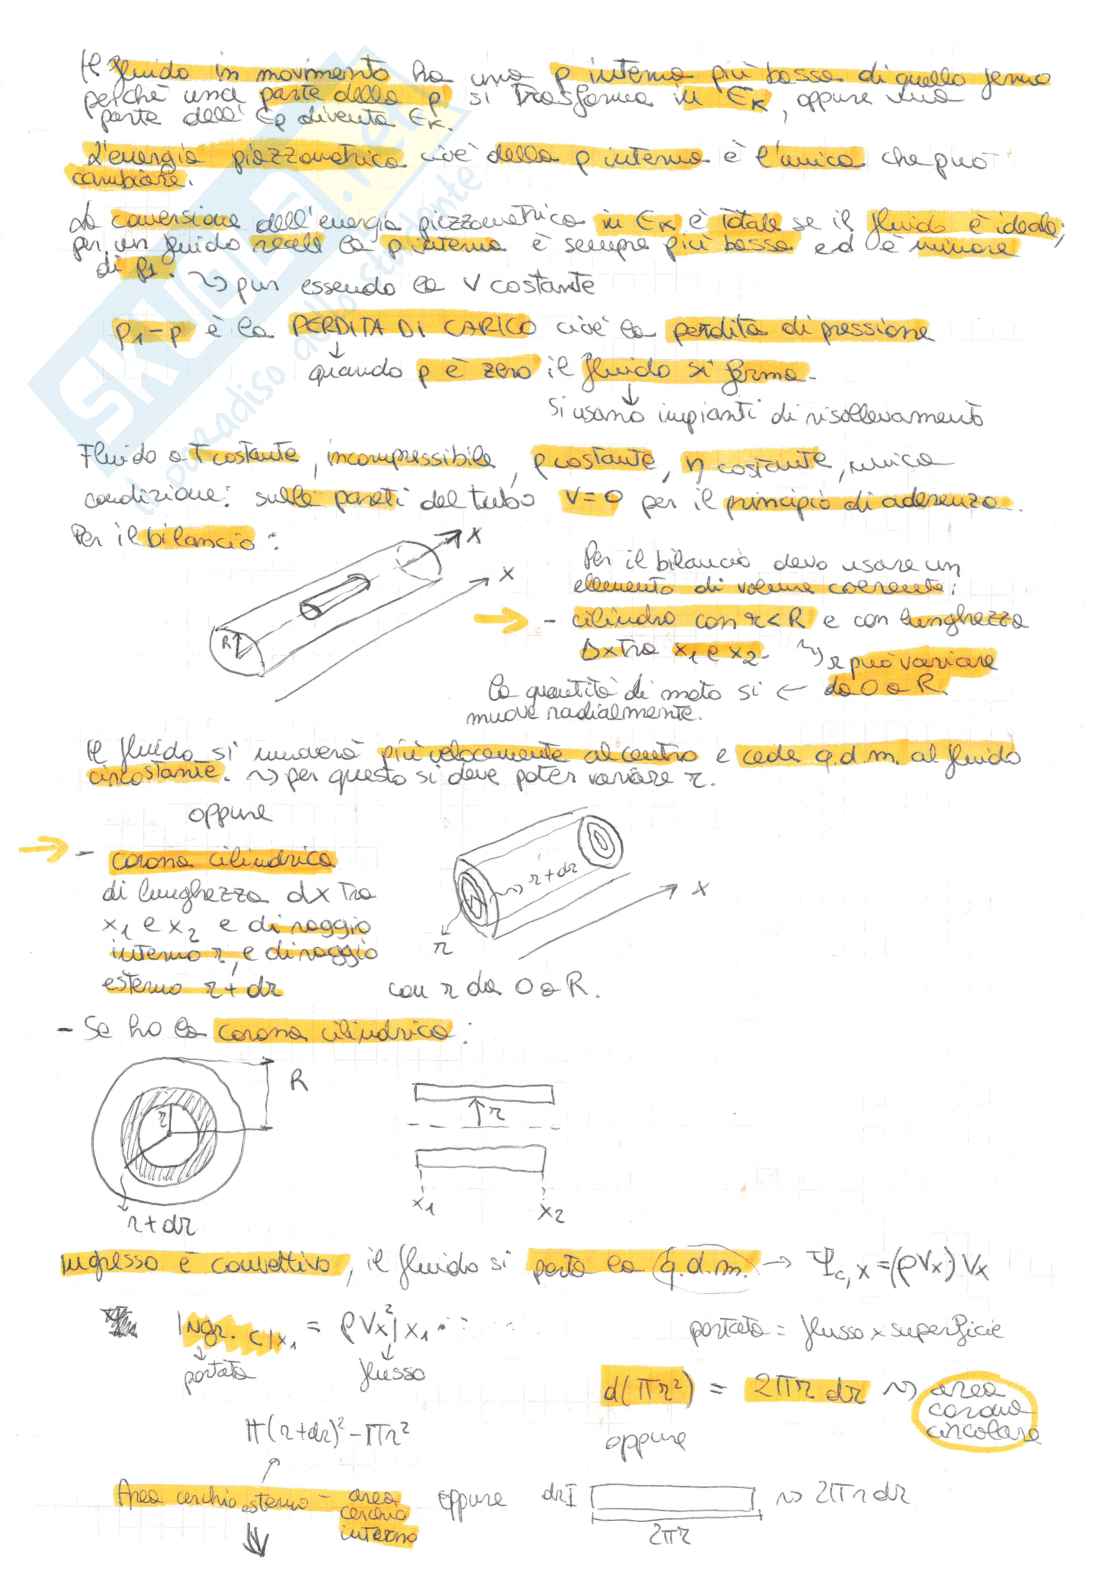 Il fluido in movimento ha una p interna più bassa di quello fermo
perché una parte della p si trasforma in Eκ, oppure una
parte dell'Ep diventa Eκ.
L'energia piezzometrica cioè della p interna è l'unica che può
cambiare.
La conversione dell'energia piezzometrica in Eκ è totale se il fluido è ideale;
per un fluido reale la p interna è sempre più bassa ed è minore
di p1. ~> pur essendo la v costante
p1-p è la PERDITA DI CARICO cioè la perdita di pressione
↓
quando p è zero il fluido si ferma.
↓
si usano impianti di risollevamento
Fluido a T costante, incompressibile, ρ costante, η costante, unica
condizione: sulle pareti del tubo v=0 per il principio di aderenza.
Per il bilancio:
x
x
R
Per il bilancio devo usare un
elemento di volume coerente:
→ - cilindro con r<R e con lunghezza
Δx tra x1 e x2. ~> r può variare
da 0 a R.
la quantità di moto si ←
muove radialmente.
Il fluido si muoverà più velocemente al centro e cede q.d.m. al fluido
circostante. ~> per questo si deve poter variare r.
oppure
→ - corona cilindrica
di lunghezza dx tra
x1 e x2 e di raggio
interno r, e di raggio
esterno r+dr
r+dr
x
r
con r da 0 a R.
- Se ho la corona cilindrica:
R
r
r+dr
r
x1
x2
Ingresso è convettivo, il fluido si porta la q.d.m. → Ψc,x=(ρVx)Vx
Ingr. c|x1 = ρVx²|x1
portata
flusso
portata = flusso x superficie
d(πr²) = 2πr dr ~> area
corona
circolare
oppure
π(r+dr)²-πr²
Area cerchio esterno - area
cerchio
interno
oppure
dr
~> 2πr dr
2πr
SKUOLA.net
il paradiso dello studente